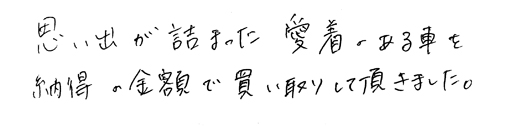 思い出が詰まった愛着のある車を
納得の金額で買い取りして頂きました。